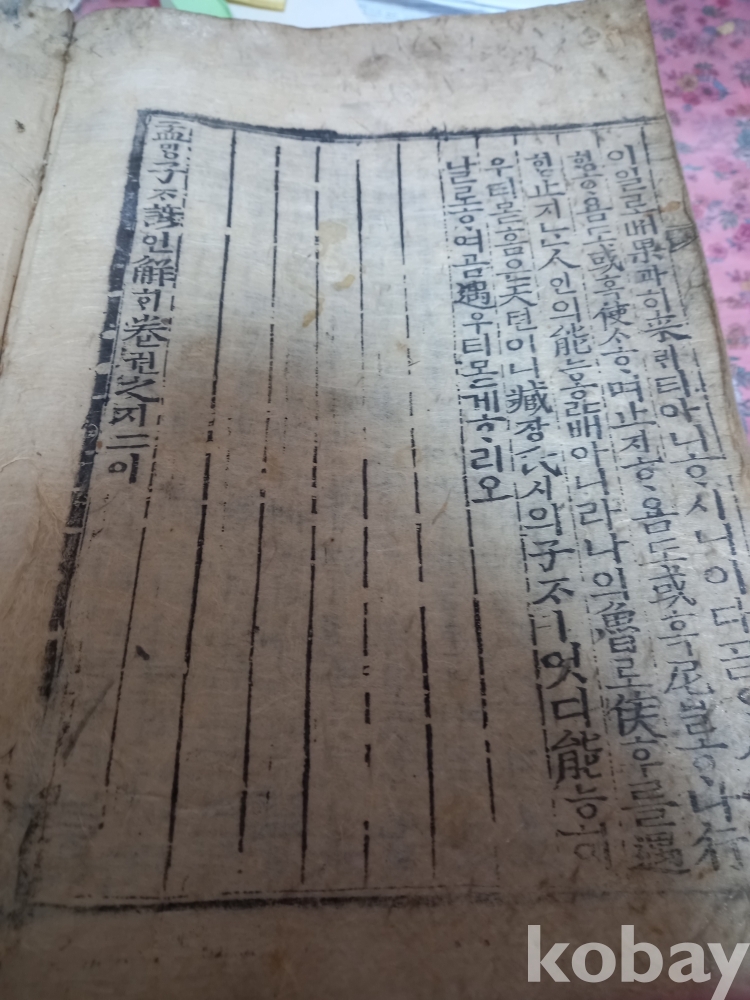 이일로ᄡᅥ果과히來ᄅᆡ티아니ᄒᆞ시니이다ᄀᆞᆯ
ᄒᆡᆼᄒᆞ욤도或혹使ᄉᆞᄒᆞ며止지ᄒᆞ욤도或혹尼닐ᄒᆞ나行
ᄒᆡᆼ止지ᄂᆞᆫ人인의能능ᄒᆞᆯ배아니라나의魯로侯후를遇
우티몯홈은天텬이니臧장氏시의子ᄌᆞㅣ엇디能능히
날로ᄒᆞ여곰遇우티몯게ᄒᆞ리오
孟ᄆᆡᆼ子ᄌᆞ諺언解ᄒᆡ卷권之지二이
kobay